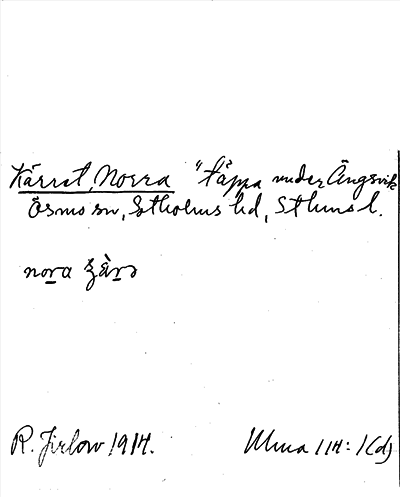 Kärret, Norra "täppa under Ängsvik
Ösmo sn, Stholms hd, Sthms l.
nora
R. Jirlow 1914.
Ulma 114: 1(d)